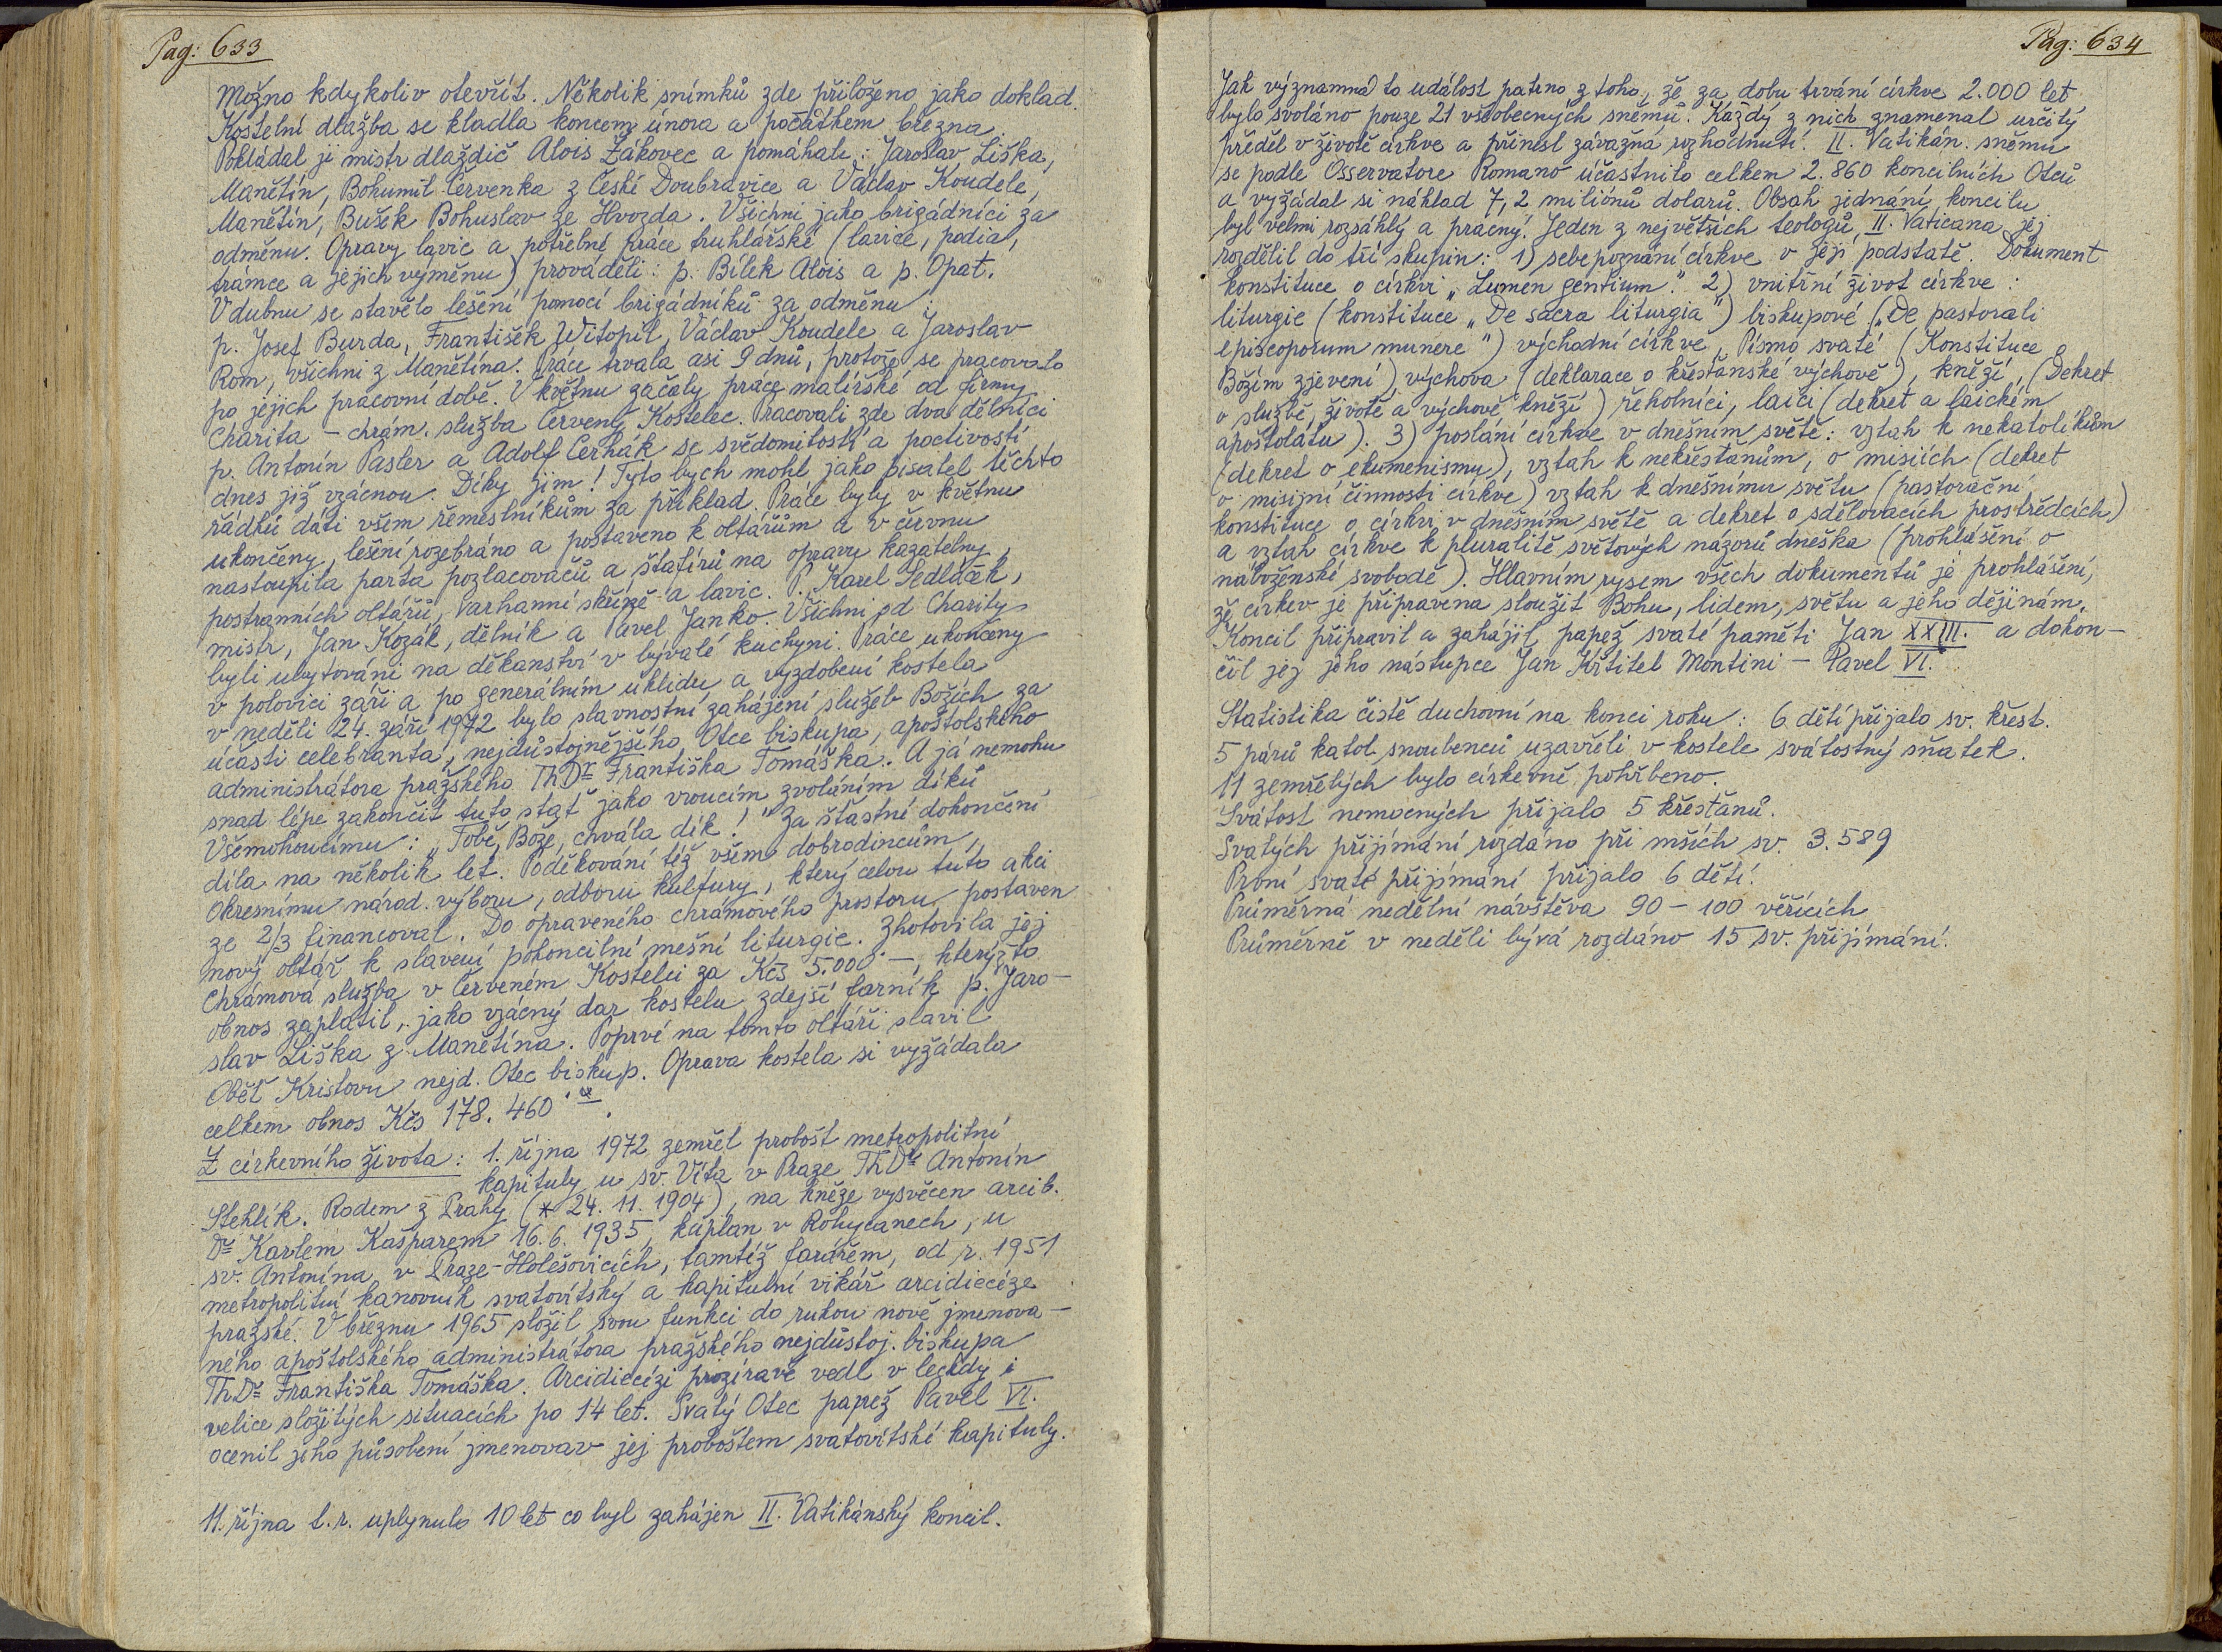 Pag: 633
Možno kdykoliv otevřít. Několik snímků zde přiloženo jako doklad.
Kostelní dlažba se kladla koncem února a počátkem března.
Pokládal ji mistr dlaždič Alois Žákovec a pomáhali: Jaroslav Liška,
Manětín, Bohumil Červenka z České Doubravice a Václav Koudele,
Manětín, Bušek Bohuslav ze Hvozda. Všichni jako brigádníci za
odměnu. Opravy lavic a potřebné práce truhlářské (lavice, podia,
trámce a jejich výměnu) prováděli: p. Bílek Alois a p. Opat.
V dubnu se stavělo lešení pomocí brigádníků za odměnu:
p. Josef Burda, František Witopil, Václav Koudele a Jaroslav
Rom, všichni z Manětína. Práce trvala asi 9 dnů, protože se pracovalo
po jejich pracovní době. V květnu začaly práce malířské od firmy
Charita - chrám. služba Červený Kostelec. Pracovali zde dva dělníci
p. Antonín Pasler a Adolf Čerňák se svědomitostí a poctivostí
dnes již vzácnou. Díky jim! Tyto bych mohl jako pisatel těchto
řádků dáti všem řemeslníkům za příklad. Práce byly v květnu
ukončeny, lešení rozebráno a postaveno k oltářům a v červnu
nastoupila parta pozlacovačů a štafírů na opravy kazatelny,
postranních oltářů, varhanní skříně a lavic. P. Karel Sedláček,
mistr, Jan Kozák, dělník a Pavel Janko. Všichni od Charity
byli ubytováni na děkanství v bývalé kuchyni. Práce ukončeny
v polovici září a po generálním úklidu a vyzdobení kostela
v neděli 24. září 1972 bylo slavnostní zahájení služeb Božích za
účasti celebranta, nejdůstojnějšího Otce biskupa, apoštolského
administrátora pražského ThDr Františka Tomáška. A já nemohu
snad lépe zakončit tuto stať jako vroucím zvoláním díků
Všemohoucímu: „Tobě, Bože, chvála dík!" Za šťastné dokončení
díla na několik let. Poděkování též všem dobrodincům,
Okresnímu národ. výboru, odboru kultury, který celou tuto akci
ze 2/3 financoval. Do opraveného chrámového prostoru postaven
nový oltář k slavení pokoncilní mešní liturgie. Zhotovila jej
Chrámová služba v Červeném Kostelci za Kčs 5.000.-, kterýžto
obnos zaplatil, jako vzácný dar kostelu zdejší farník p. Jaro-
slav Liška z Manětína. Poprvé na tomto oltáři slavil
Oběť Kristovu nejd. Otec biskup. Oprava kostela si vyžádala
celkem obnos Kčs 178.460
Z církevního života: 1. října 1972 zemřel probošt metropolitní
kapituly u sv. Víta v Praze ThDr Antonín
Stehlík. Rodem z Prahy (* 24.11.1904), na kněze vysvěcen arcib.
Dr Karlem Kašparem 16.6.1935, kaplan v Rokycanech, u
sv. Antonína v Praze-Holešovicích, tamtéž farářem, od r. 1951
metropolitní kanovník svatovítský a kapitulní vikář arcidiecéze
pražské. V březnu 1965 složil svou funkci do rukou nově jmenova-
ného apoštolského administrátora pražského nejdůstoj. biskupa
ThDr Františka Tomáška. Arcidiecézi prozíravě vedl v leckdy i
velice složitých situacích po 14 let. Svatý Otec papež Pavel VI.
ocenil jeho působení jmenovav jej proboštem svatovítské kapituly.
11. října t.r. uplynulo 10 let co byl zahájen II. Vatikánský koncil.
Pag: 634
Jak významná to událost patrno z toho, že za dobu trvání církve 2.000 let
bylo svoláno pouze 21 všeobecných sněmů. Každý z nich znamenal určitý
předěl v životě církve a přinesl závažná rozhodnutí. II. Vatikán. sněmu
se podle Osservatore Romano účastnilo celkem 2.860 koncilních Otců
a vyžádal si náklad 7,2 miliónů dolarů. Obsah jednání koncilu
byl velmi rozsáhlý a pracný. Jeden z největších teologů II. Vaticana jej
rozdělil do tří skupin: 1) sebepoznání církve v její podstatě. Dokument
konstituce o církvi „Lumen gentium." 2) vnitřní život církve:
liturgie (konstituce „De sacra liturgia") biskupové („De pastorali
episcoporum munere") východní církve, Písmo svaté (Konstituce o
Božím zjevení) výchova (deklarace o křesťanské výchově), kněží, (Dekret
o službě, životě a výchově kněží) řeholníci, laici (dekret a laickém
apoštolátu). 3) poslání církve v dnešním světě: vztah k nekatolíkům
(dekret o ekumenismu), vztah k nekřesťanům, o misiích (dekret
o misijní činnosti církve) vztah k dnešnímu světu (pastorační
konstituce o církvi v dnešním světě a dekret o sdělovacích prostředcích)
a vztah církve k pluralitě světových názorů dneška (prohlášení o
náboženské svobodě). Hlavním rysem všech dokumentů je prohlášení,
že církev je připravena sloužit Bohu, lidem, světu a jeho dějinám.
Koncil připravil a zahájil papež svaté paměti Jan XXIII. a dokon-
čil jej jeho nástupce Jan Křtitel Montini - Pavel VI.
Statistika čistě duchovní na konci roku: 6 dětí přijalo sv. křest.
5 párů katol. snoubenců uzavřeli v kostele svátostný sňatek.
11 zemřelých bylo církevně pohřbeno.
Svátost nemocných přijalo 5 křesťanů.
Svatých přijímání rozdáno při mších sv. 3.589
První svaté přijímání přijalo 6 dětí.
Průměrná nedělní návštěva 90 - 100 věřících
Průměrně v neděli bývá rozdáno 15 sv. přijímání.